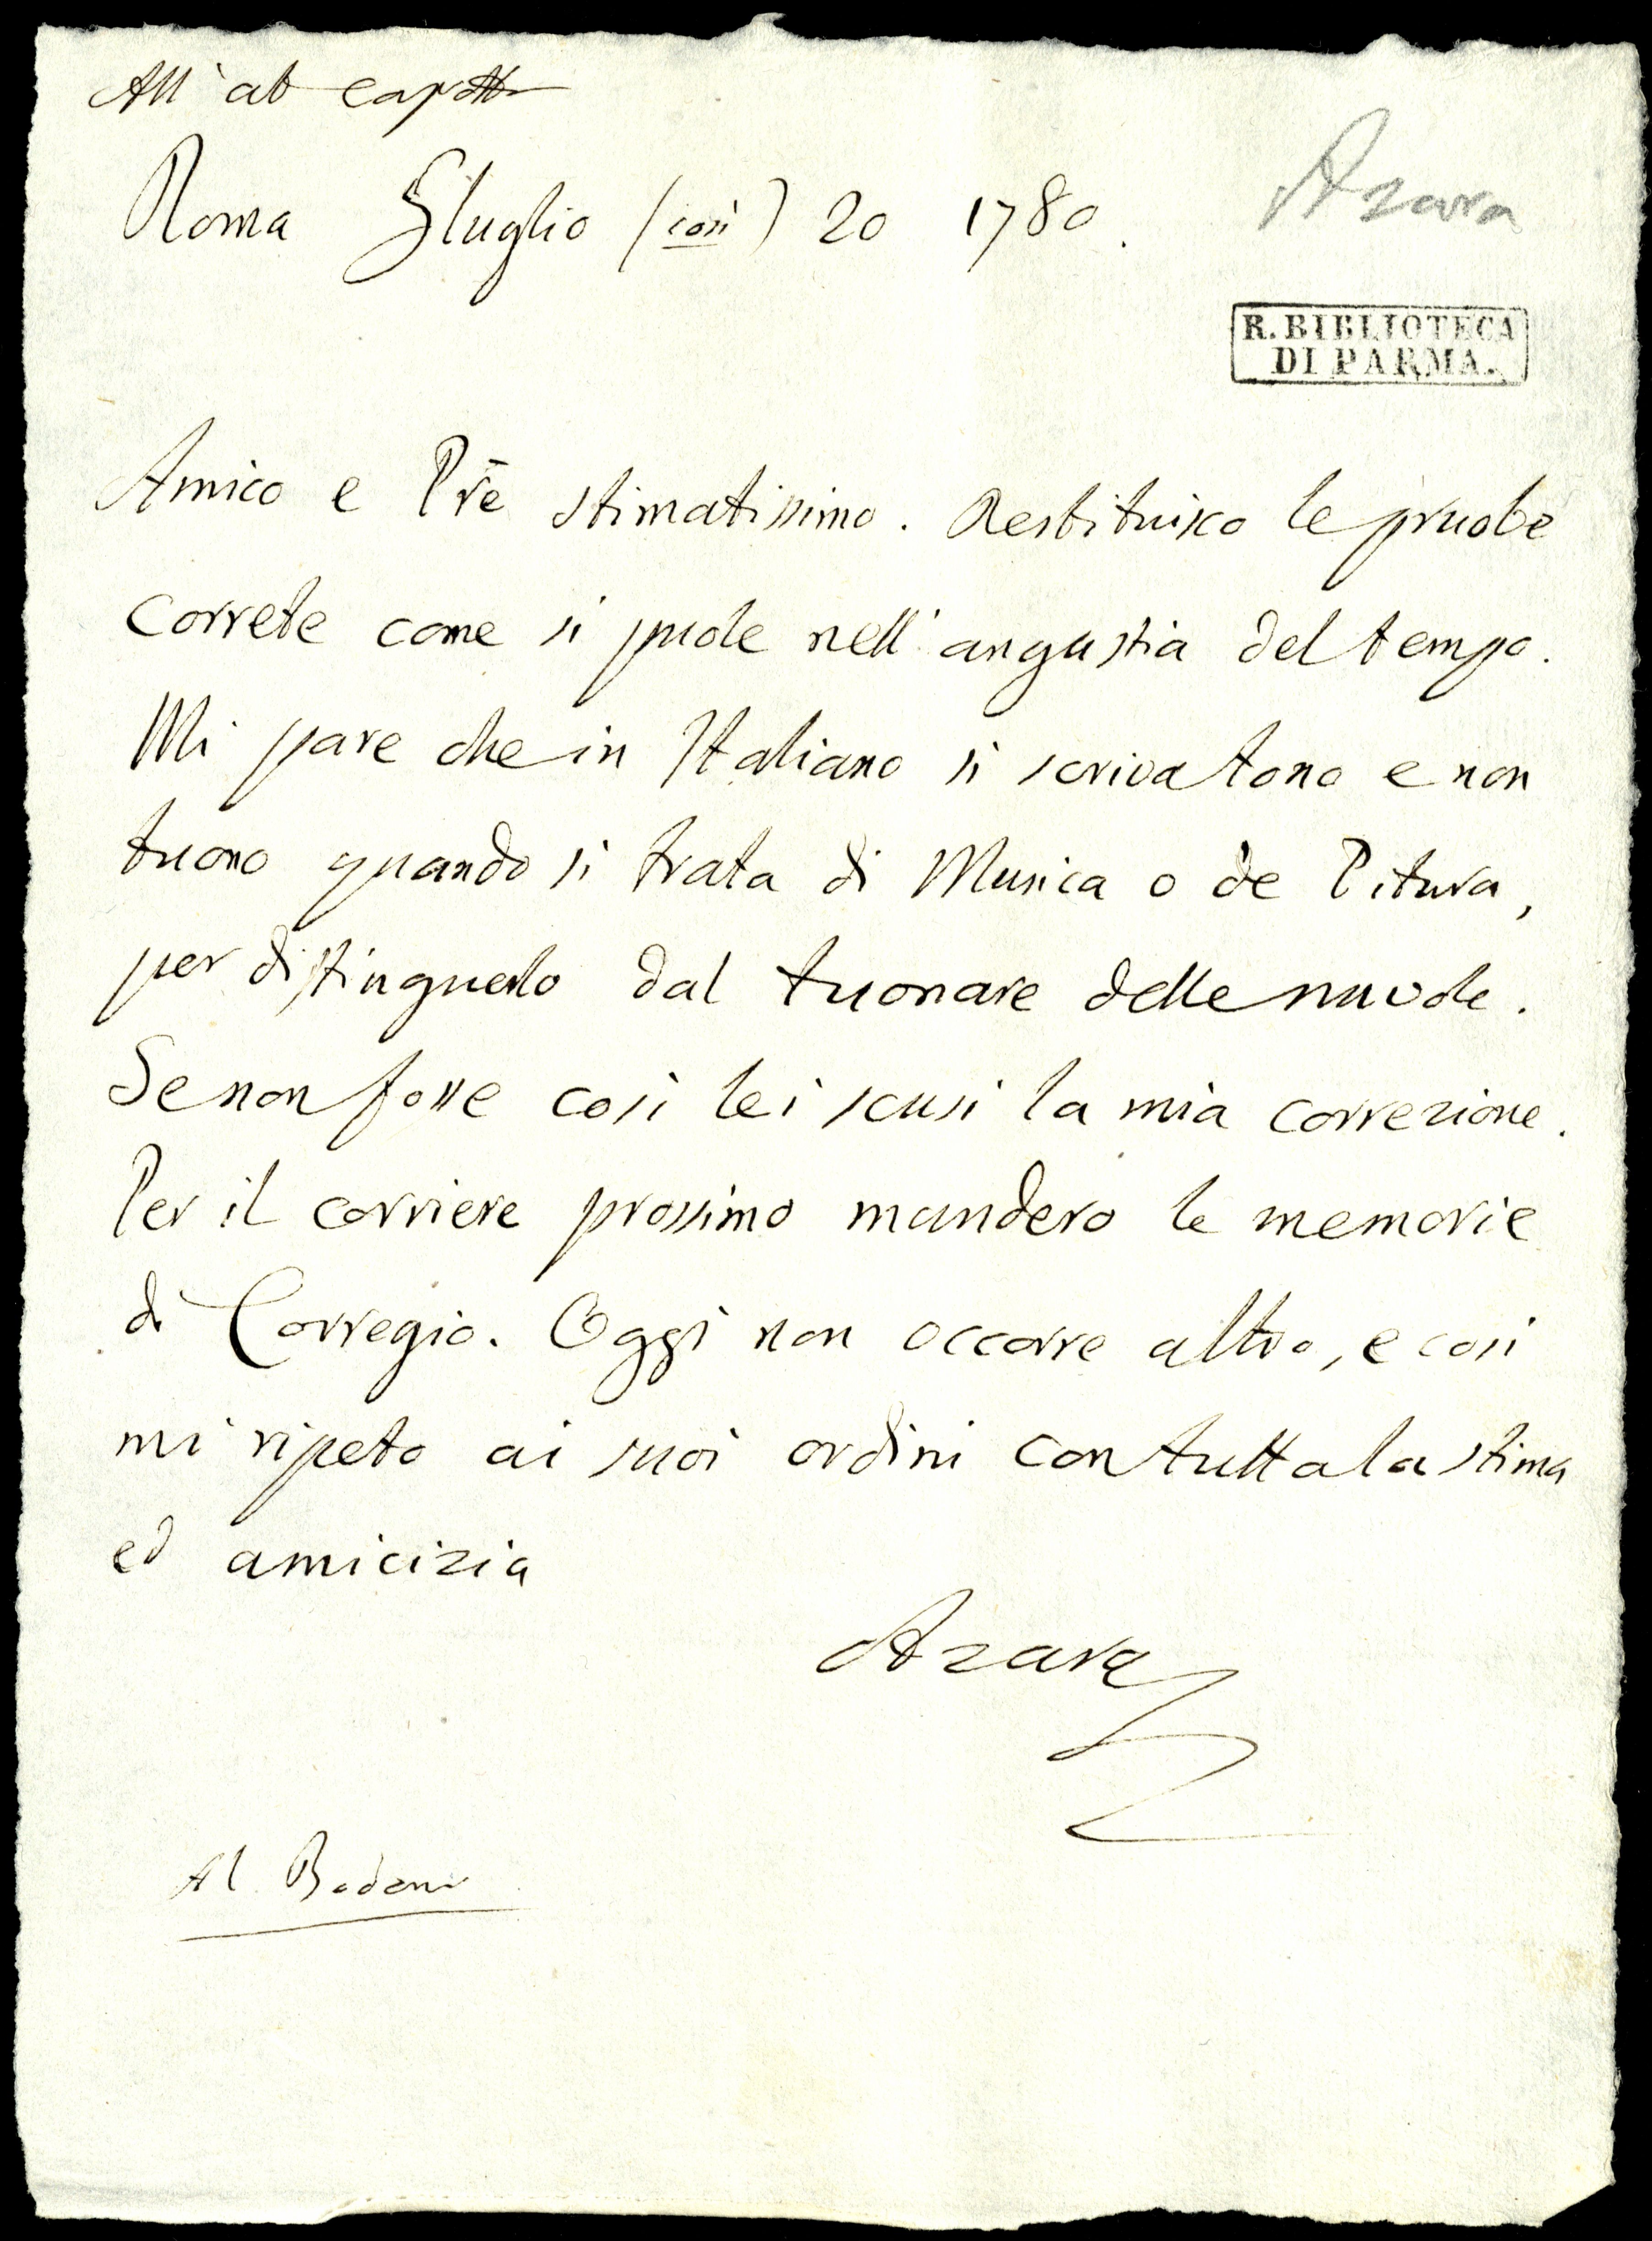 All' ab
Roma Gluglio (così) 20 1780.
Azara
R. BIBLIOTECA
DI PARMA.
Amico e Prẽ stimatissimo. Restituisco le pruobe
correte come si puole nell'angustia del tempo.
Mi pare che in Italiano si scriva tono e non
tuono quando si trata di Musica o de Pitura,
per distinguerlo dal tuonare delle nuvole.
Se non fosse cosi lei scusi la mia correzione.
Per il corriere prossimo mandero le memorie
di Corregio. Oggi non occorre altro, e cosi
mi ripeto ai suoi ordini con tutta la stima
ed amicizia
Azara
Al Bodoni